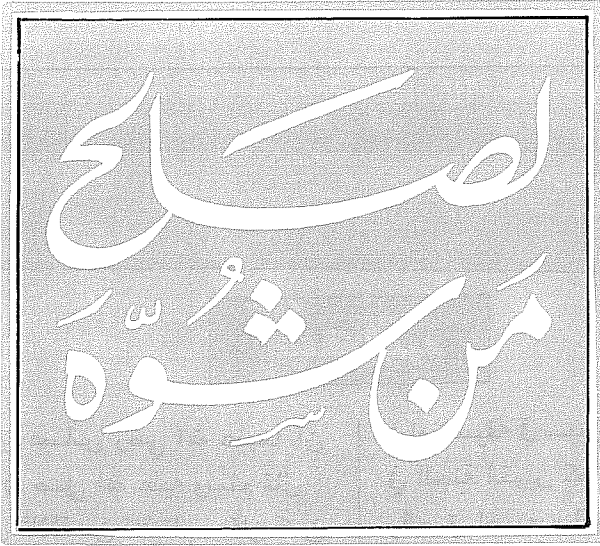 لصَالح
مَن شُوِّهَ